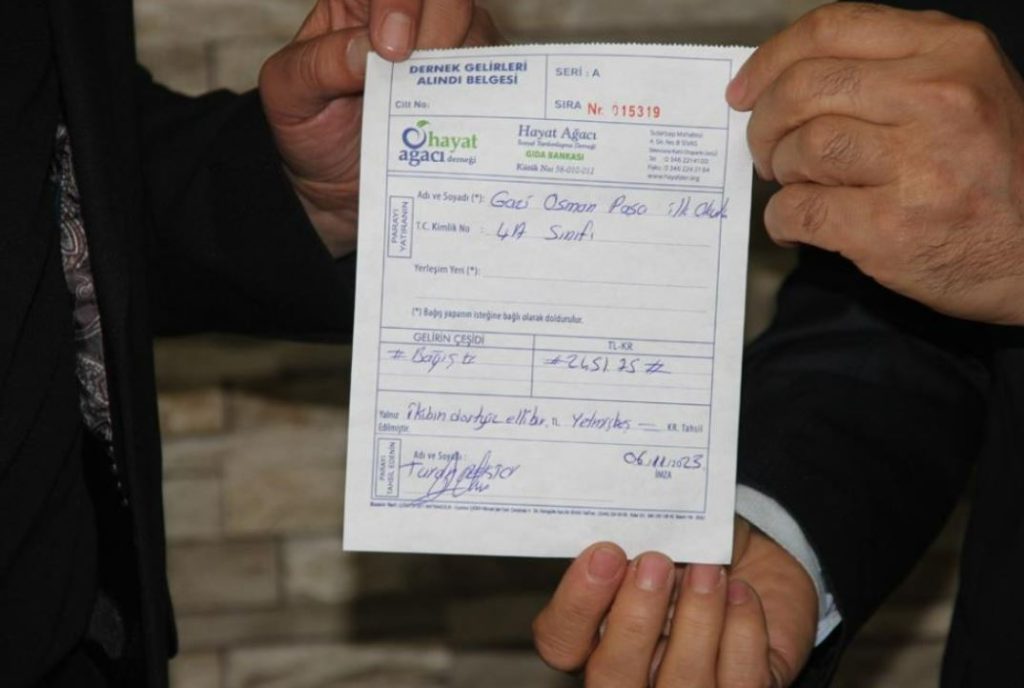 DERNEK GELİRLERİ
ALINDI BELGESİ
Cilt No:
SERİ : A
SIRA Nr. 015319
hayat
ağacı derneği
Hayat Ağacı
Sosyal Yardımlaşma Derneği
GIDA BANKASI
Kütük No: 58-010-011
PARAYI YATIRANIN
Adı ve Soyadı (*): Gazi Osman Paşa ilk Okulu
T.C. Kimlik No : 4/A Sınıfı
Yerleşim Yeri (*):
(*) Bağış yapanın isteğine bağlı olarak doldurulur.
GELİRİN ÇEŞİDİ
TL-KR
# Bağıştır
#2451.75 #
Yalnız ikibin dörtyüz ellibir. TL Yetmişbeş — KR. Tahsil
Edilmiştir.
PARAYI TAHSİL EDENİN
Adı ve Soyadı :
06/11/2023
İMZA